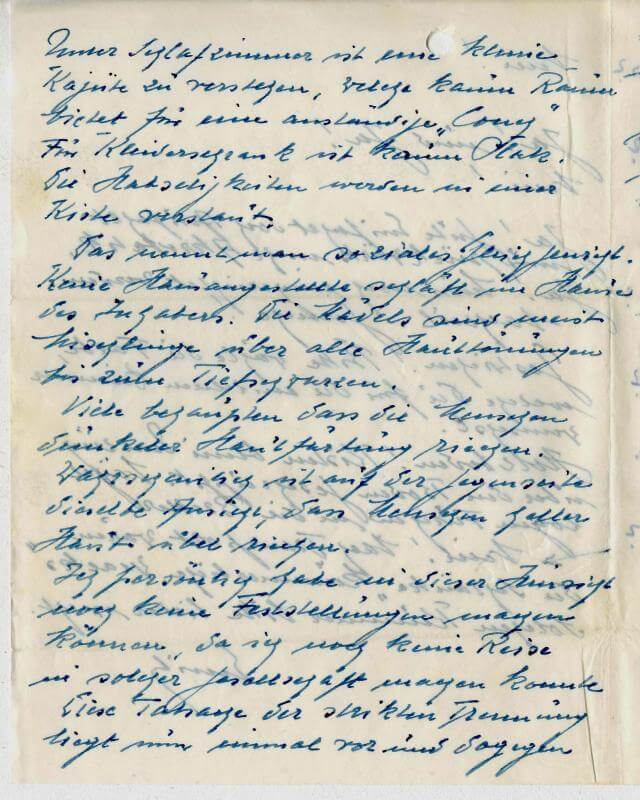 Unser Schlafzimmer ist eine kleine
Kajüte zu verstehen, welche kaum Raum
bietet für eine anständige „Couch"
Für Kleiderschrank ist kaum Platz.
Die Habseligkeiten werden in einer
Kiste verstaut.
Das nennt man soziales
Keine Hausangestellte schläft im Hause
des Inhabers. Die Mädels sind meist
Mischlinge über alle Hauttönungen
bis zum Tiefschwarzen.
Viele behaupten dass die Menschen
dunkeler Hautfärbung riechen.
ist auf der Gegenseite
dieselbe Ansicht, dass Menschen heller
Haut übel riechen.
Ich persönlich habe in dieser Hinsicht
noch keine Feststellungen machen
können, da ich noch keine Reise
in solcher Gesellschaft machen konnte
Diese Tatsache der strikten Trennung
liegt nun einmal vor und dagegen